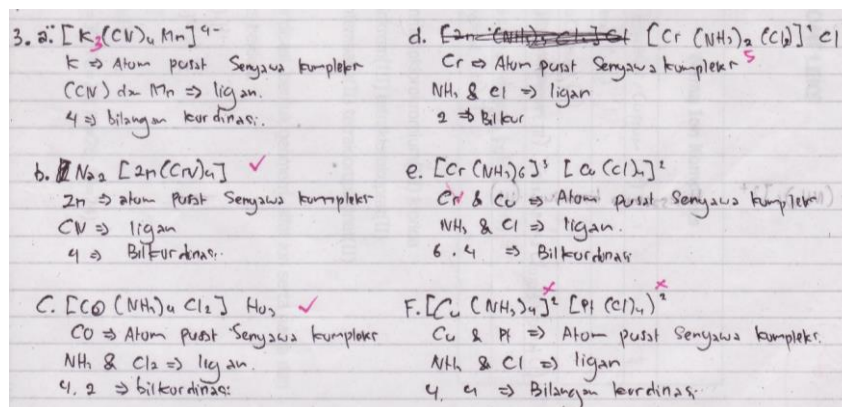 3. a. [K3(CN)4 Mn]4-
K ⇒ Atom pusat Senyawa kumpleks
(CN) dan Mn ⇒ ligan.
4 ⇒ bilangan kordinasi.
b. Na2 [Zn(CN)4] ✓
Zn ⇒ atom pusat Senyawa kumpleks
CN ⇒ ligan
4 ⇒ Bilkordinasi.
C. [CO (NH3)4 Cl2] ✓
CO ⇒ Atom pusat Senyawa kumpleks
NH3 & Cl2 ⇒ ligan.
4. 2 ⇒ bilkordinasi
d. [Cr (NH3)2 (Cl2)]+ Cl
5
Cr ⇒ Atom pusat Senyawa kumpleks
NH3 & Cl ⇒ ligan
2 ⇒ Bilkor
e. [Cr (NH3)6]3 [Cu (Cl)4]2
Cr & Cu ⇒ Atom pusat Senyawa kumpleks
NH3 & Cl ⇒ ligan.
6. 4 ⇒ Bilkordinasi
F. [Cu (NH3)4]2 [Pt (Cl)4)2
Cu & Pt ⇒ Atom pusat Senyawa kumpleks.
NH3 & Cl ⇒ ligan
4, 4 ⇒ Bilangan kordinasi.